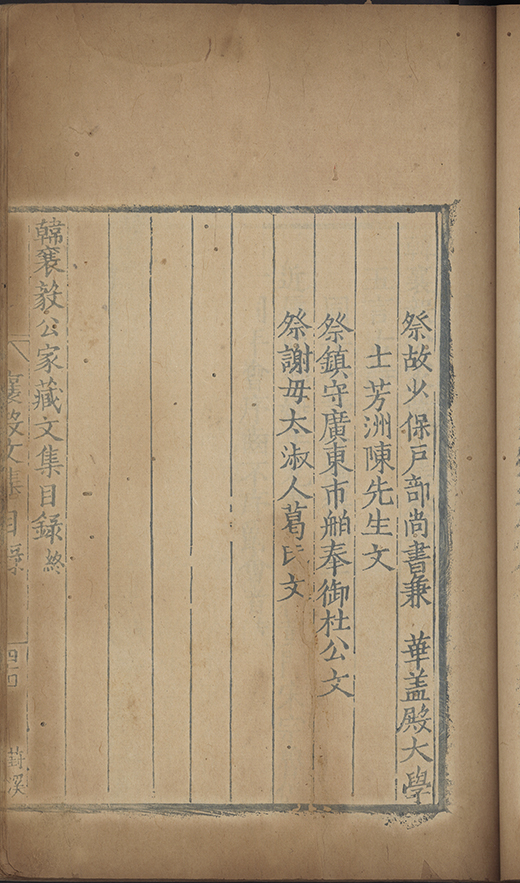 祭故少保戸部尚書兼　華盖殿大學
士芳洲陳先生文
祭鎮守廣東市舶奉御杜公文
祭謝母太淑人葛氏文
韓襄毅公家藏文集目錄終
襄毅文集目錄